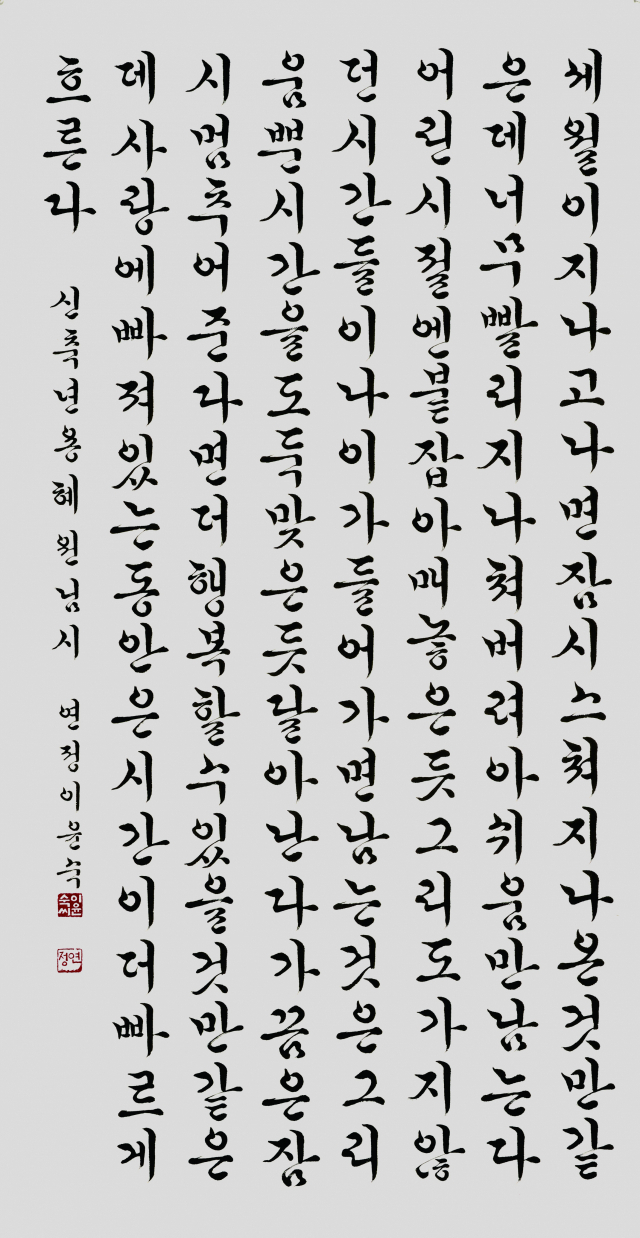 세월이지나고나면잠시스쳐지나온것만같
은데너무빨리지나쳐버려아쉬움만남는다
어린시절엔붙잡아매놓은듯그리도가지않
던시간들이나이가들어가면남는것은그리
움뿐시간을도둑맞은듯달아난다가끔은잠
시멈추어준다면더행복할수있을것만같은
데사랑에빠져있는동안은시간이더빠르게
흐른다 신축년용혜원님시 연정이윤숙
이윤숙씨
연정